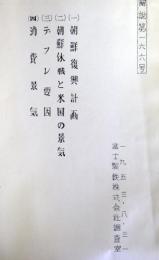 解説第一六六号
(一) 朝鮮復興計画
(二) 朝鮮休戦と米国の景気
(三) デフレ要因
(四) 消費景気
一九五三・八・三一
富士製鉄株式会社調査室